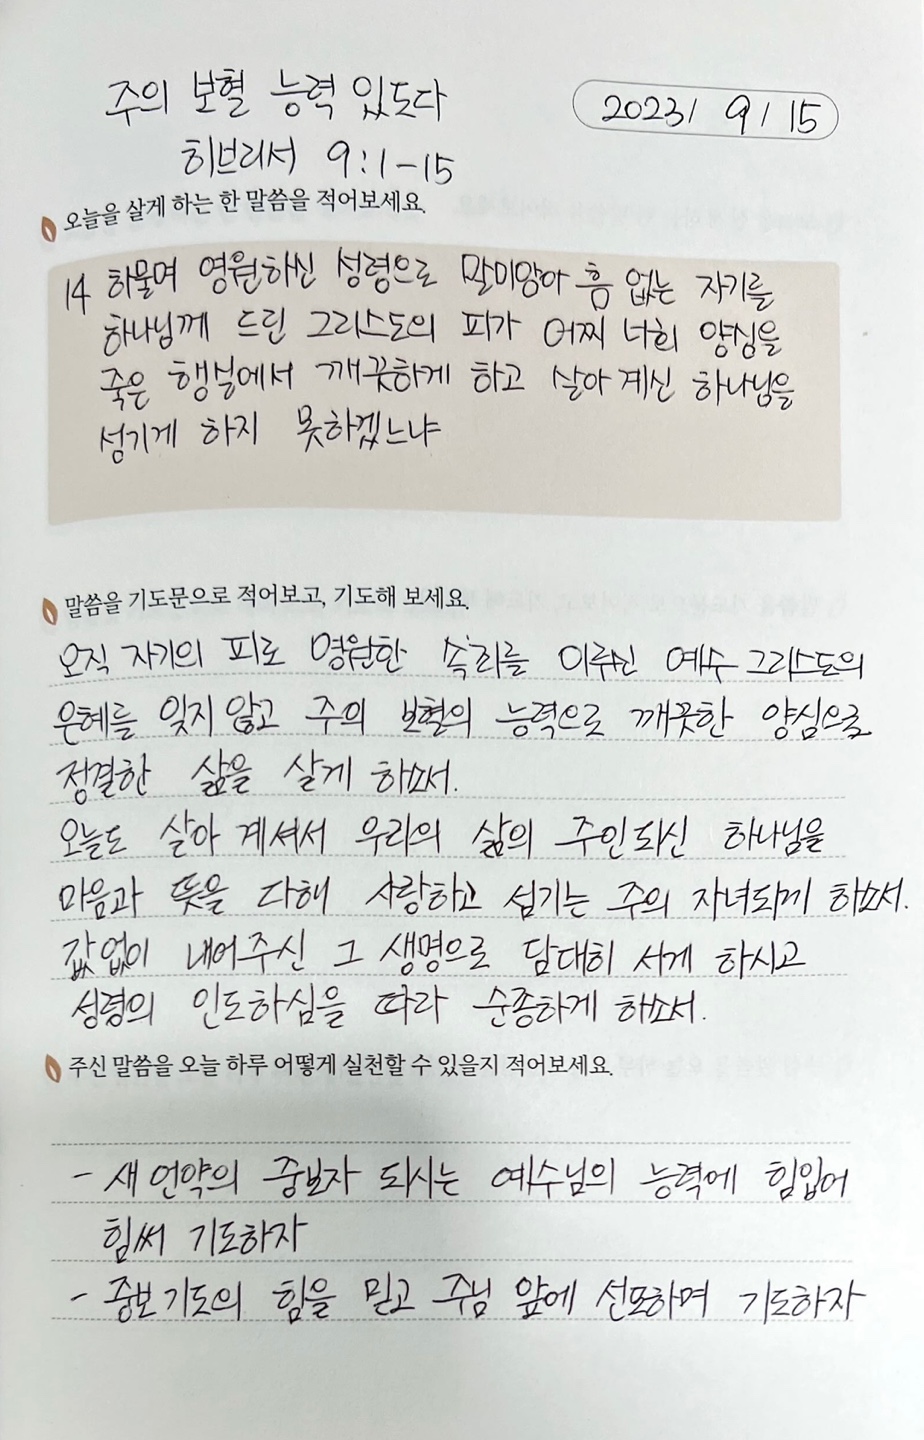 주의 보혈 능력 있도다
2023/ 9/ 15
히브리서 9:1-15
오늘을 살게 하는 한 말씀을 적어보세요.
14 하물며 영원하신 성령으로 말미암아 흠 없는 자기를
하나님께 드린 그리스도의 피가 어찌 너희 양심을
죽은 행실에서 깨끗하게 하고 살아 계신 하나님을
섬기게 하지 못하겠느냐
말씀을 기도문으로 적어보고, 기도해 보세요.
오직 자기의 피로 영원한 속죄를 이루신 예수 그리스도의
은혜를 잊지 않고 주의 보혈의 능력으로 깨끗한 양심으로
정결한 삶을 살게 하소서.
오늘도 살아 계셔서 우리의 삶의 주인되신 하나님을
마음과 뜻을 다해 사랑하고 섬기는 주의 자녀되게 하소서.
값없이 내어주신 그 생명으로 담대히 서게 하시고
성령의 인도하심을 따라 순종하게 하소서.
주신 말씀을 오늘 하루 어떻게 실천할 수 있을지 적어보세요.
- 새 언약의 중보자 되시는 예수님의 능력에 힘입어
힘써 기도하자
- 중보기도의 힘을 믿고 주님 앞에 선포하며 기도하자